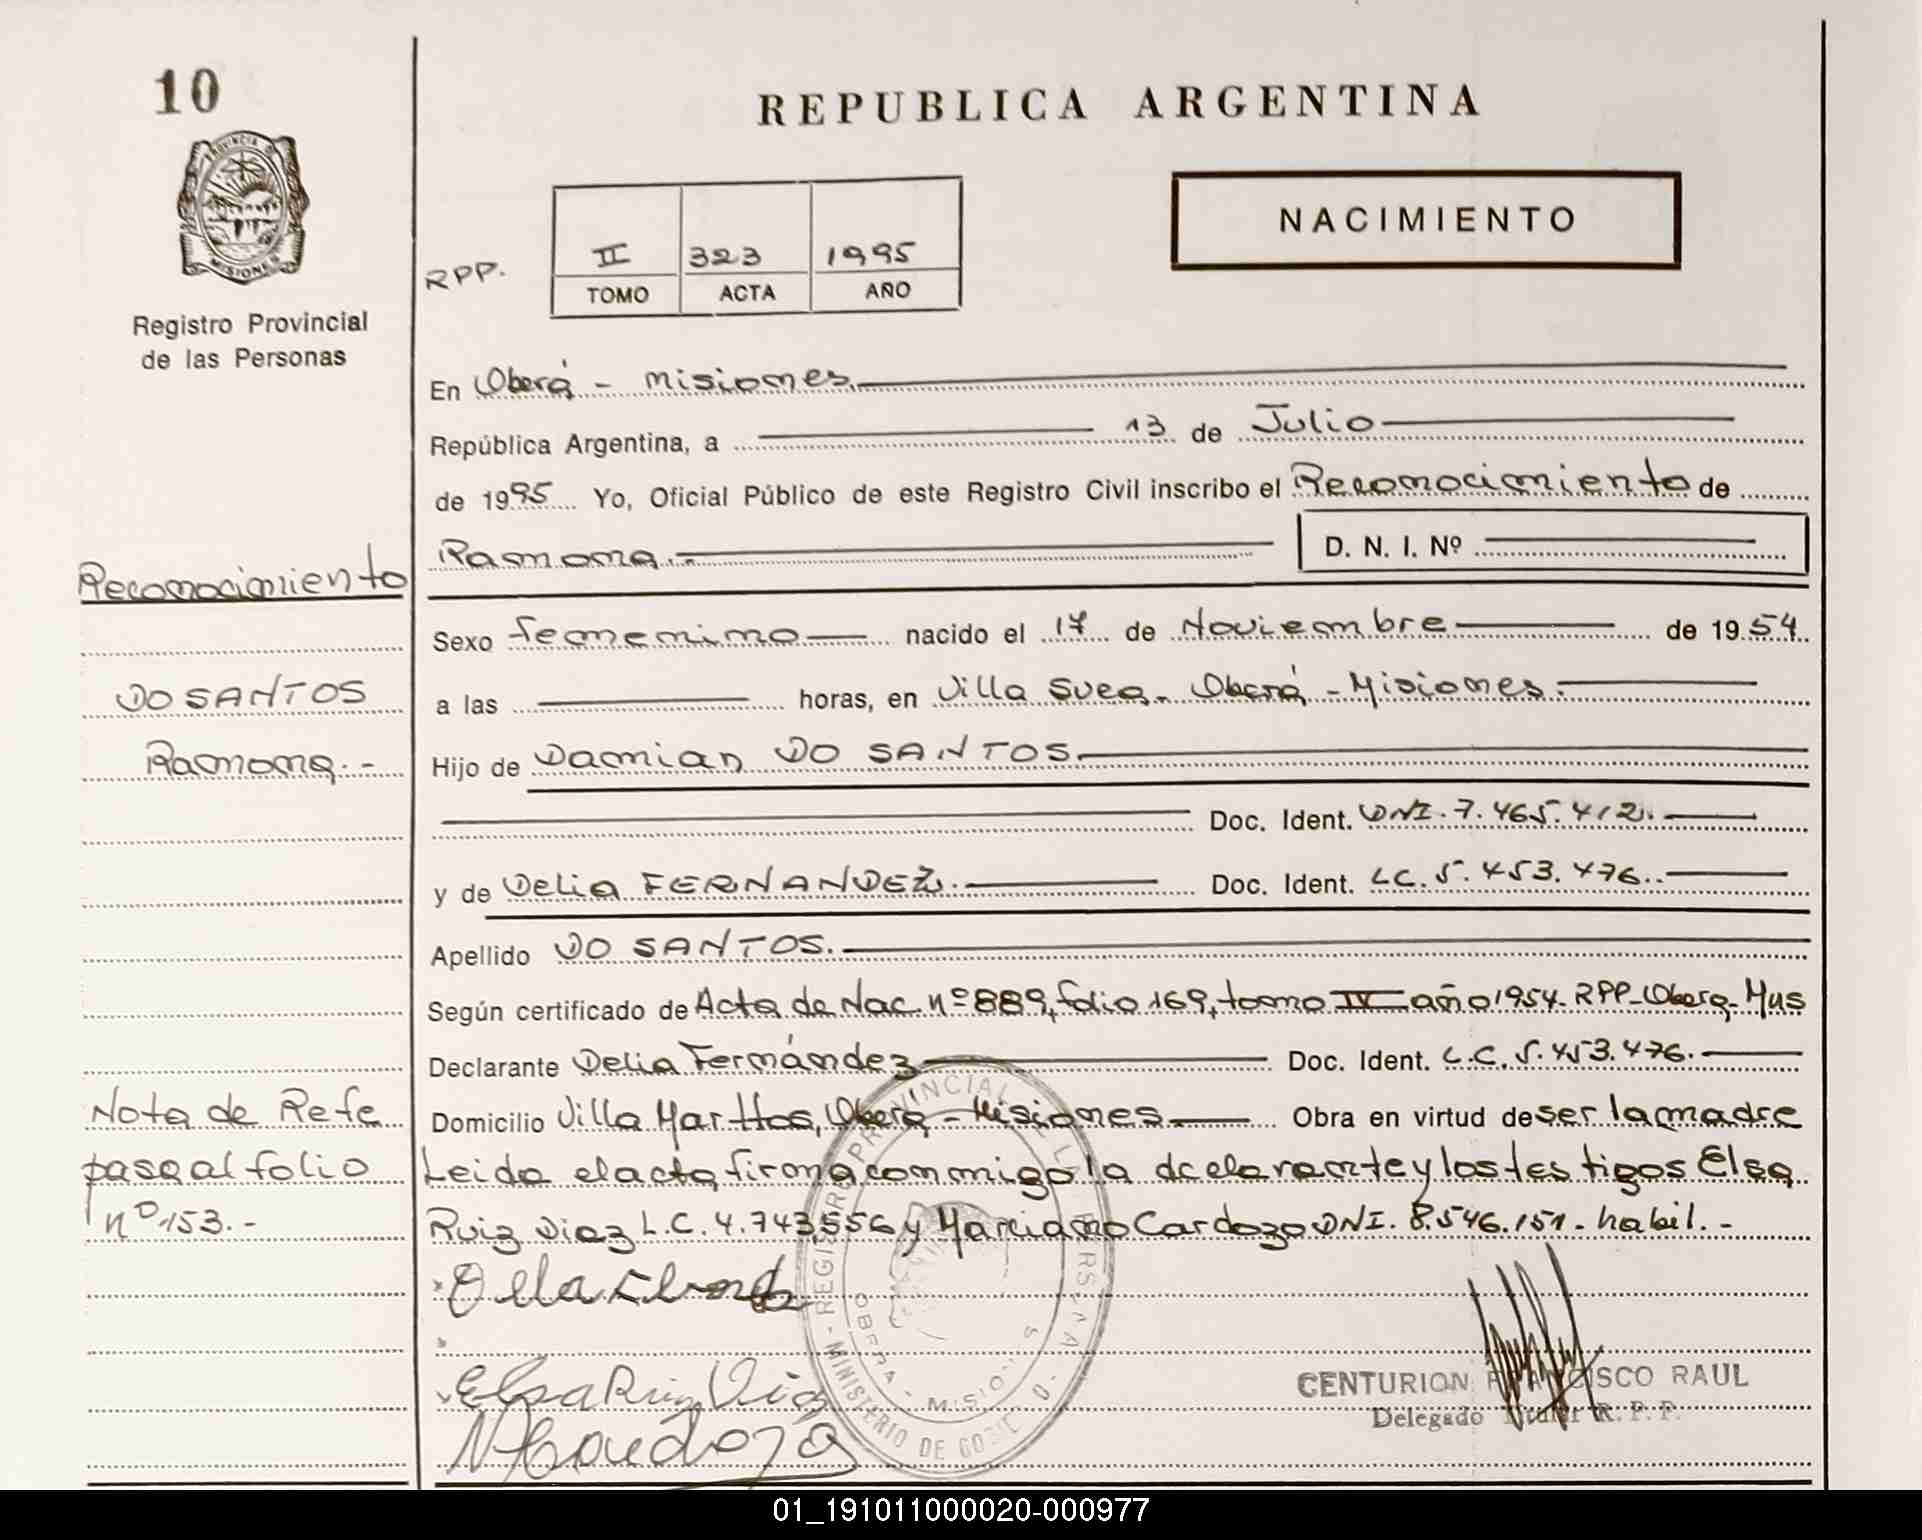 10
REPUBLICA ARGENTINA
PROVINCIA D
MISIONES
NACIMIENTO
RPP.
II 323 1995
TOMO ACTA AÑO
Registro Provincial
de las Personas
En Oberá - Misiones.
República Argentina, a 13 de Julio
de 1995 Yo, Oficial Público de este Registro Civil inscribo el Reconocimiento de
Ramona.- D. N. I. Nº
Reconocimiento
Sexo femenino nacido el 17 de Noviembre de 1954
DO SANTOS
a las horas, en Villa Svea - Oberá - Misiones.
Ramona.-
Hijo de Damian DO SANTOS.
Doc. Ident. DNI. 7.465.412.
y de Delia FERNANDEZ. Doc. Ident. LC. 5.453.476.
Apellido DO SANTOS.
Según certificado de Acta de Nac. nº 889, folio 169, tomo IV año 1954. RPP- Oberá- Mns
Declarante Delia Fernández Doc. Ident. L.C. 5.453.476.
Nota de Refe
Domicilio Villa Martos, Oberá - Misiones. Obra en virtud de ser la madre
pasa al folio
Leida el acta firma conmigo la declarante y los testigos Elsa
nº 153.-
Ruiz Diaz L.C. 4.743.556 y Marciano Cardozo DNI. 8.546.151 - habil.-
Elsa Ruiz Diaz
MCardozo
REGISTRO PROVINCIAL
MINISTERIO DE GOB
OBERA - MISIONES
CENTURION FRANCISCO RAUL
Delegado Titular R. P. P.
01_191011000020-000977